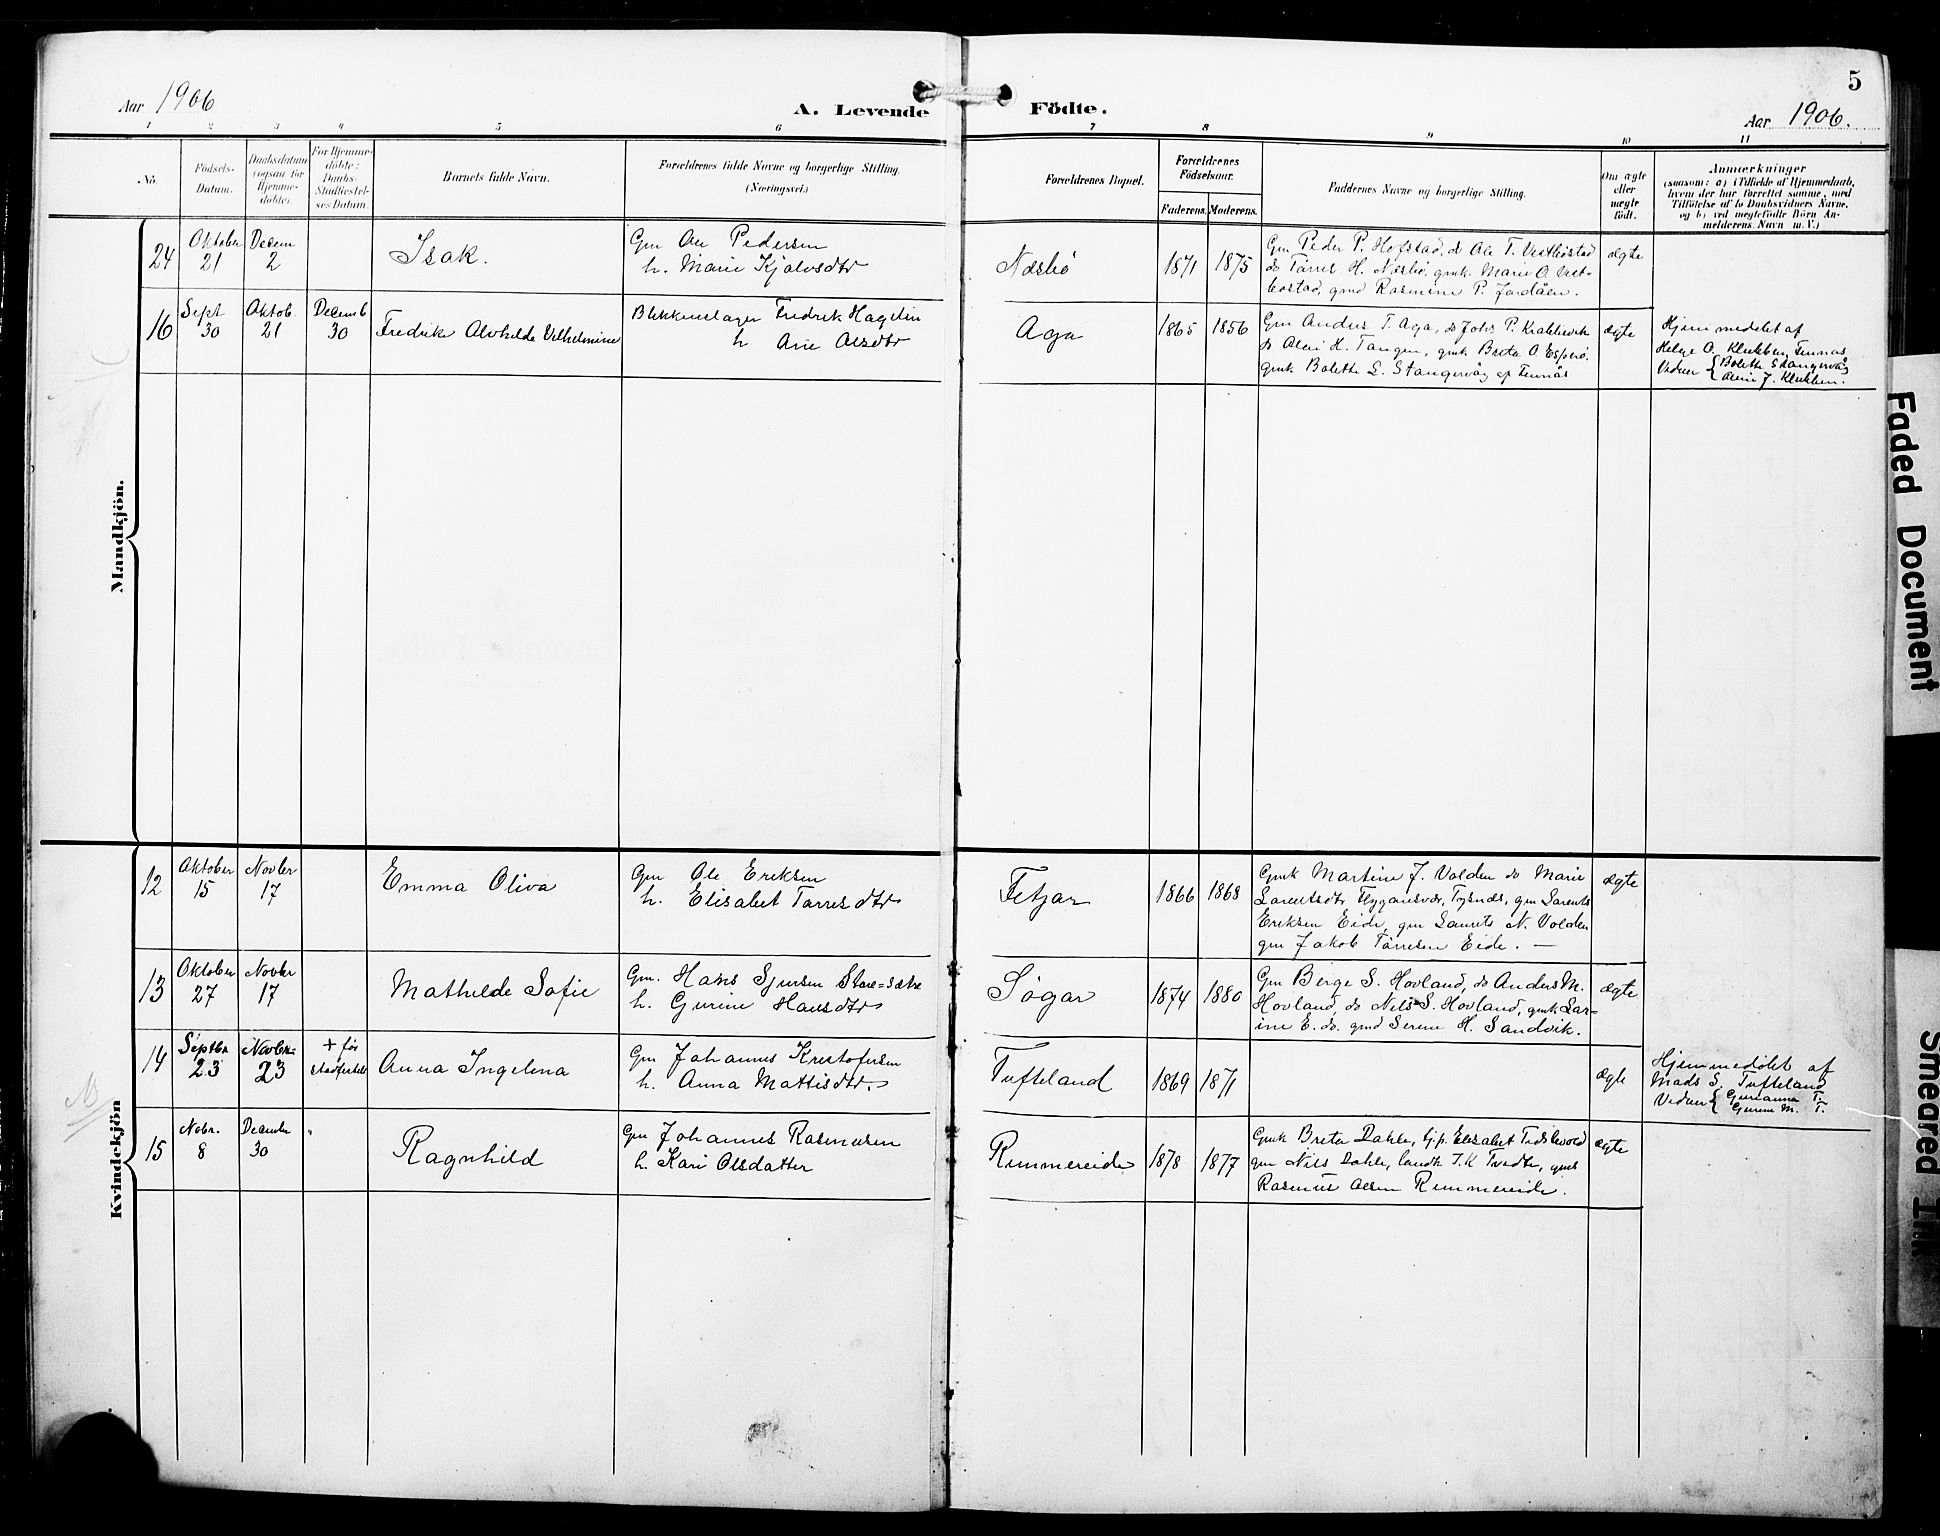 5
Aar 1906
A. Levende Födte.
Aar 1906.
1 2 3 4 5 6 7 8 9 10 11
No.
Födsels-
Datum.
Daabsdatum
(ogsaa for
Hjemme-
döbte).
For Hjemme-
döbte:
Daabs-
Stadfæstel-
ses Datum.
Barnets fulde Navn.
Forældrenes fulde Navne og borgerlige Stilling.
(Næringsvei.)
Forældrenes Bopæl.
Forældrenes
Födselsaar.
Faderens. Moderens.
Faddernes Navne og borgerlige Stilling.
Om ægte
eller
uægte
födt.
Anmærkninger
(saasom: a) i Tilfælde af Hjemmedaab,
hvem der har forrettet samme, med
Tilföielse af to Daabsvidners Navne,
og b) ved uegtefödte Börn An-
melderens Navn m. V.)
Mandkjön.
24
Oktober
21
Decem
2
Isak.
Gm Ole Pedersen
h. Marie Kjølvsdtr
Næsbø
1871
1875
Gm Peder P. Hofstad, do Ole T. Vestbøstad
do Tørres H. Næsbø, gmk. Marie O. Vest-
bøstad, gmd Rasmine P. Jordåen.
ægte
16
Sept
30
Oktob.
21
Decemb
30
Fredrik Alvhilde Vilhelmine
Blikkenslager Fredrik Hagelin
h Ane Olsdtr
Aga
1865
1856
Gm Anders T. Aga, do Johs P. Krabbevik
do Alein H. Tangen, gmk. Brita O. Esperø.
gmk Bolette L. Stangervåg af Finnås
ægte
Hjemmedøbt af
Helge O. Klubben Finnas
Vidner { Bolette Stangervåg
Aleine J. Klubben.
Kvindekjön
12
Oktober
15
Novber
17
Emma Oliva
Gm Ole Eriksen
h. Elisabet Tørresdtr
Fitjar
1866
1868
Gmk Martine J. Volden do Marie
Larentsdtr Flygansvær, Tysnes, gm Larents
Eriksen Eide, gm Laurits N. Volden
gm Jakob Tørresen Eide. —
ægte
13
Oktober
27
Novbr
17
Mathilde Sofie
Gm. Hans Sjursen Store=Sætre
h. Gurine Hansdtr
Søgar
1874
1880
Gm Berge S. Hovland, do Anders M.
Hovland, do Nils S. Hovland, gmk Lar=
ine E. do. gmd Serine H. Sandvik.
ægte
14
Septbr
23
Novbr=
23
+ før
stadfestels
Anna Ingelina
Gm Johannes Kristofersen
h. Anna Mattisdtr.
Tufteland
1869
1871
ægte
Hjemmedøbt af
Mads S. Tufteland
Vidner { Gurianna T.
Gurine M. T.
15
Nobr.
8
Decembr
30
"
Ragnhild
Gm Johannes Rasmusen
h. Kari Olsdatter
Rimmereide
1878
1877
Gmk Brita Dahle, tjp. Elisabet Tislevold
gm Nils Dahle, landh J. K Tvedte, gmd
Rasmus Olsen Rimmereide.
ægte
Faded Document
Smeared Ink